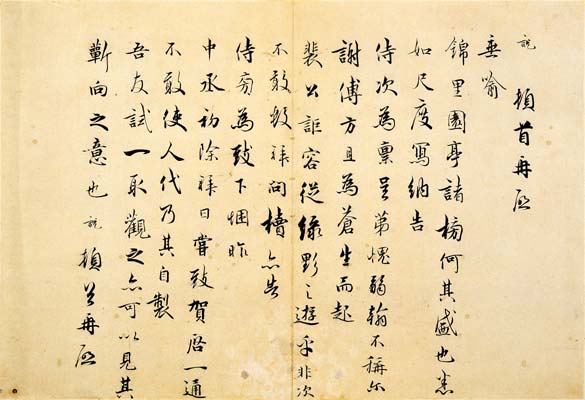 說 頓首再啟
垂喻
錦里園亭諸榜何其盛也悉
如尺度寫納告
侍次為稟呈第愧弱翰不稱尔
謝傅方且為蒼生而起
裴公詎容從綠野之遊乎非次
不敢數拜問櫝亦告
侍旁為致下悃昨
中丞初除拜日嘗致賀啓一通
不敢使人代乃其自製
吾友試一取觀之亦可以見其
蘄向之意也 說 頓首再啟